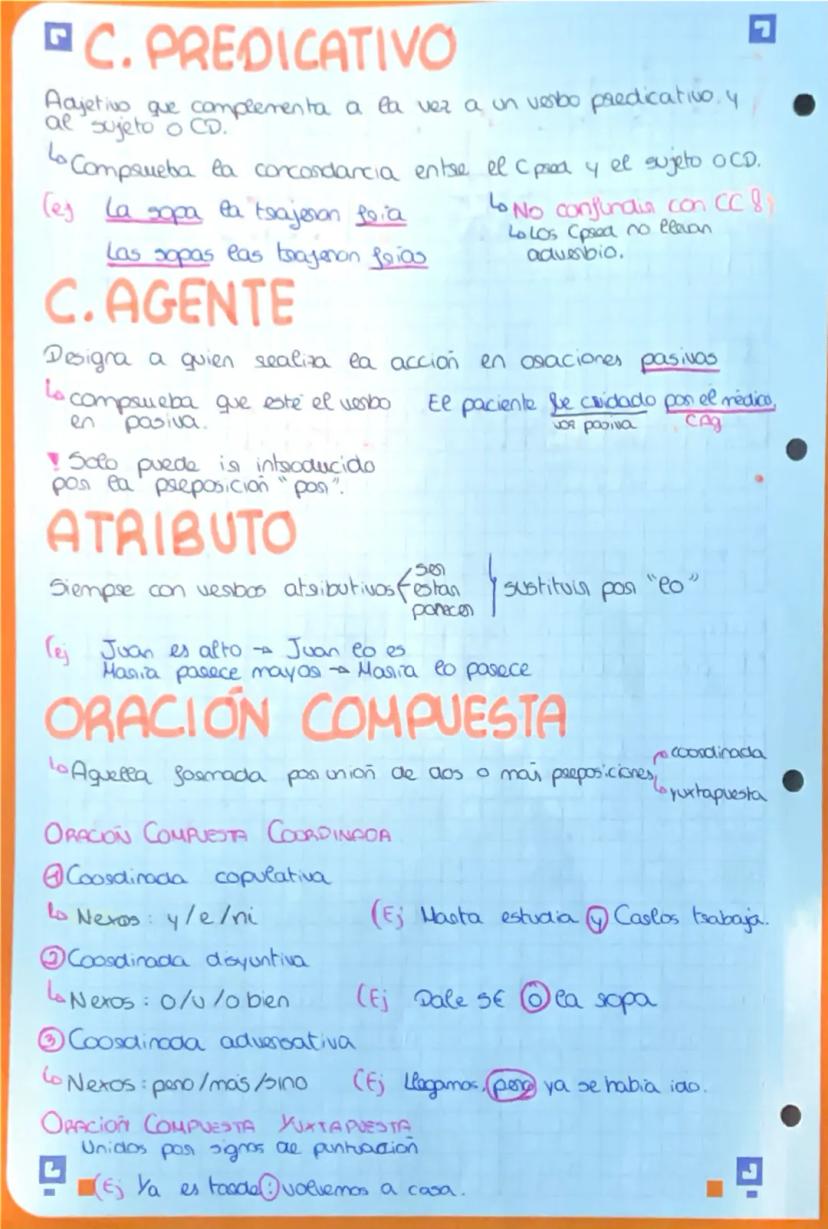 C. PREDICATIVO
Adjetivo que complementa a la vez a un verbo predicativo y
al sujeto o CD.
↳ Comprueba la concordancia entre el Cpred y el sujeto o CD.
(ej La sopa la trajeron fría
↳ No confundir con CC !!
↳ Los Cpred no llevan
adverbio.
Las sopas las trajeron frías
C. AGENTE
Designa a quien realiza la acción en oraciones pasivas
↳ comprueba que esté el verbo
en pasiva.
El paciente fue cuidado por el médico.
voz pasiva CAg
! Solo puede ir introducido
por la preposición "por".
ATRIBUTO
Siempre con verbos atributivos
ser
estar
parecer
sustituir por "lo"
(ej Juan es alto → Juan lo es
María parece mayor → María lo parece
ORACIÓN COMPUESTA
↳ Aquella formada por unión de dos o más preposiciones
coordinada
yuxtapuesta
ORACIÓN COMPUESTA COORDINADA
① Coordinada copulativa
↳ Nexos: y/e/ni (Ej Marta estudia y Carlos trabaja.
② Coordinada disyuntiva
↳ Nexos: o/u/o bien (Ej Dale 5€ o la sopa
③ Coordinada adversativa
↳ Nexos: pero/más/sino (Ej Llegamos, pero ya se había ido.
ORACIÓN COMPUESTA YUXTAPUESTA
Unidos por signos de puntuación
(Ej Ya es tarde: volvemos a casa.